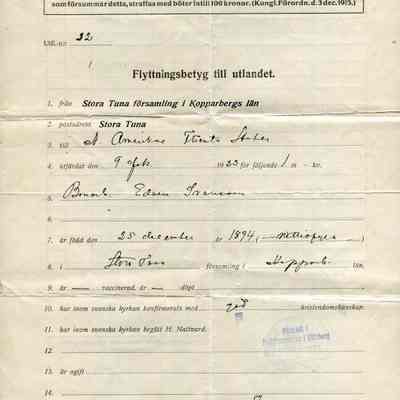 som försummar detta, straffas med böter intill 100 kronor. (Kungl. Förordn. d. 3 dec. 1915.)
Utfl.-nr 22
Flyttningsbetyg till utlandet.
1. från Stora Tuna församling i Kopparbergs län
2. postadress Stora Tuna
3. till N. Amerikas Förenta Stater
4. utfärdat den 9 febr. 1923 för följande 1 m – kv.
5. Edvin Svensson
6.
7. är född den 25 december år 1894,
8. i Stora Tuna församling i Kopparb. län.
9. är — vaccinerad, är — döpt
10. har inom svenska kyrkan konfirmerats med god kristendomskunskap.
11. har inom svenska kyrkan begått H. Nattvard.
12.
13. är ogift
14.